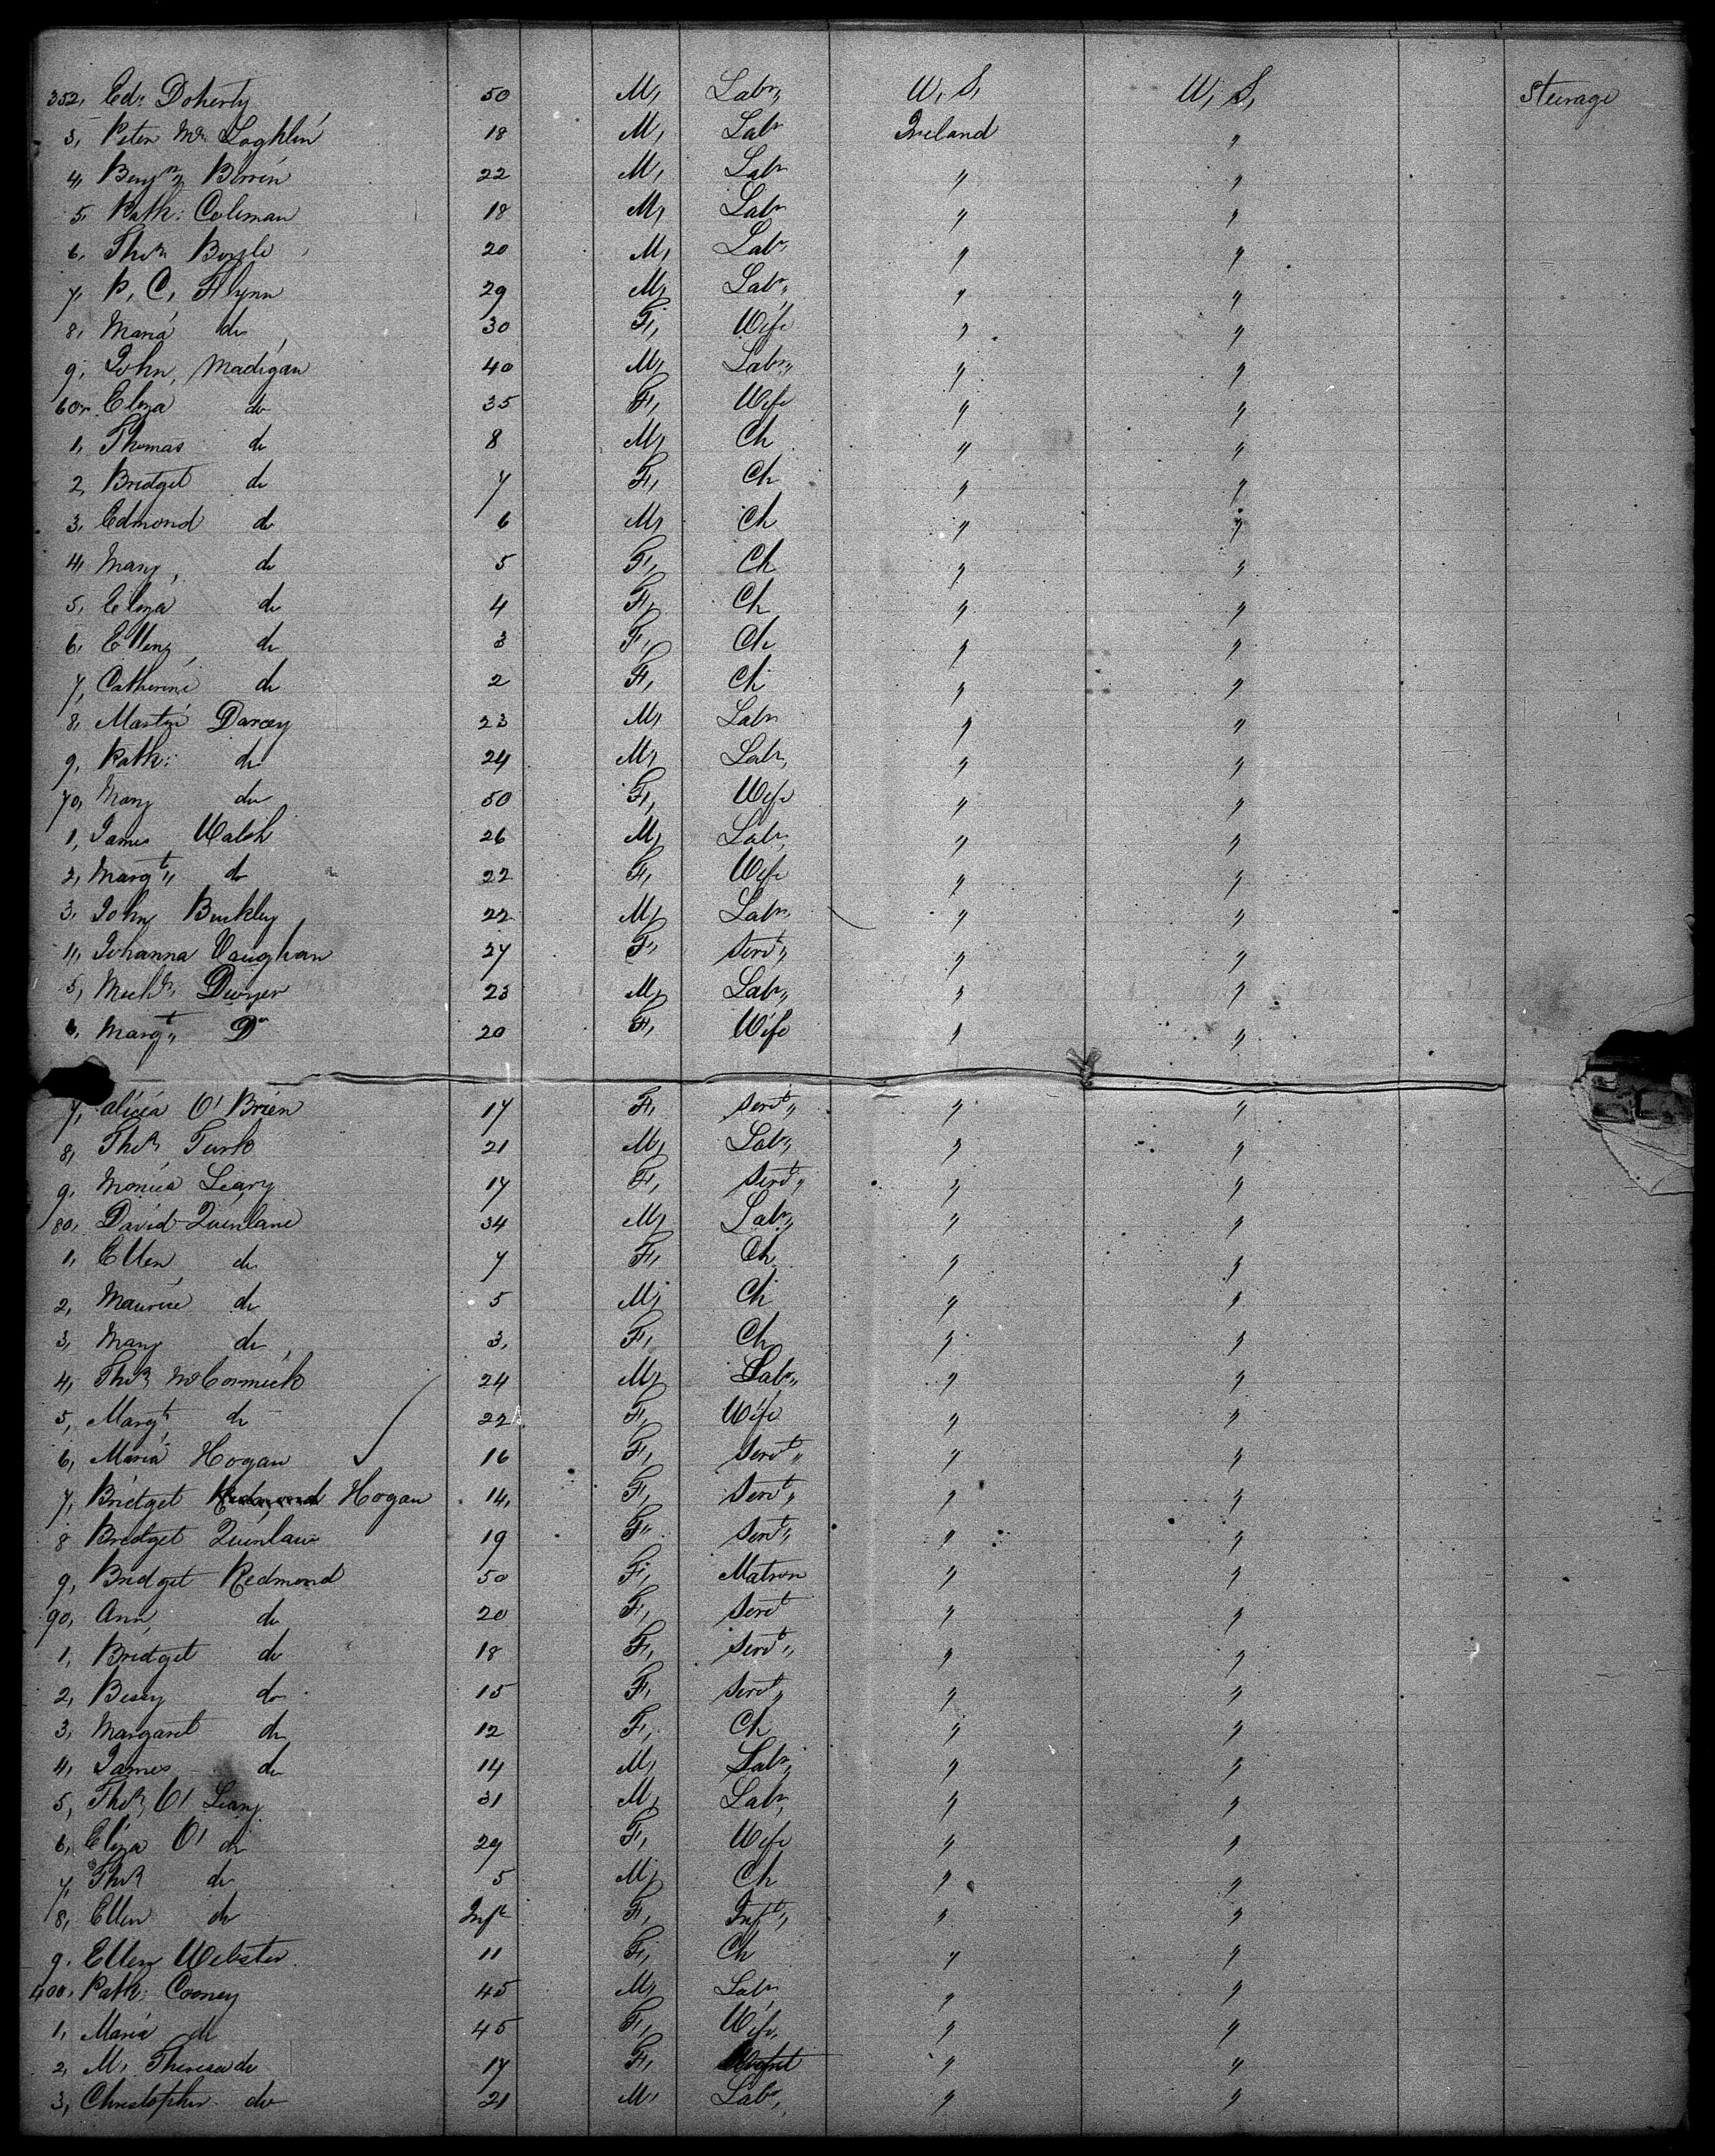 352, Edd Doherty 50 M, Labr,, U, S, U, S, Steerage
3, Peter Mc Loghlin 18 M, Labr Ireland "
4, Benjn 22 M, Labr " "
5, Patk: Coleman 18 M, Labr " "
6, Thos Boyle 20 M, Labr " "
7, P, C, Flynn 29 M, Labr,, " "
8, Maria do 30 F, Wife " "
9, John, Madigan 40 M, Labr,, " "
60, Eliza do 35 F, Wife " "
1, Thomas do 8 M, Ch " "
2, Bridget do 7 F, Ch " "
3, Edmond do 6 M, Ch " "
4, Mary, do 5 F, Ch " "
5, Eliza do 4 F, Ch " "
6, Ellen, do 3 F, Ch " "
7, Catherine do 2 F, Ch " "
8, Martin Darcey 23 M, Labr " "
9, Patk: do 24 M, Labr, " "
70, Mary do 50 F, Wife " "
1, James Walsh 26 M, Labr, " "
2, Margt,, do 22 F, Wife " "
3, John Buckley 22 M, Labr, " "
4, Johanna Vaughan 27 F, Servt,, " "
5, Michl, Dwyer 23 M, Labr,, " "
6, Margt,, Do 20 F, Wife " "
7, Alicia O' Brien 17 F, Servt,, " "
8, Thos, Turk 21 M, Labr,, " "
9, Monica Leary 17 F, Servt,, " "
80, David Quinlane 34 M, Labr,, " "
1, Ellen do 7 F, Ch " "
2, Maurice do 5 M, Ch " "
3, Mary do, 3, F, Ch " "
4, Thos, McCormick 24 M, Labr,, " "
5, Margt, do 22 F, Wife " "
6, Maria Hogan 16 F, Servt,, " "
7, Bridget Redmond Hogan 14, F, Servt,, " "
8 Bridget Quinlan 19 F,, Servt,, " "
9, Bridget Redmond 50 F, Matron " "
90, Ann, do 20 F, Servt " "
1, Bridget do 18 F, Servt,, " "
2, Bessy do 15 F, Servt,, " "
3, Margaret do 12 F, Ch " "
4, James do 14 M, Labr,, " "
5, Thos, O' Leary 31 M, Labr, " "
6, Eliza O' do 29 F, Wife " "
7, Thos do 5 M, Ch " "
8, Ellen do Inft F, Inft,, " "
9, Ellen Webster 11 F, Ch " "
400, Patk: Cooney 45 M, Labr, " "
1, Maria do 45 F, Wife, " "
2, M, Theresa do 17 F, " "
3, Christopher do 21 M, Labr, " "